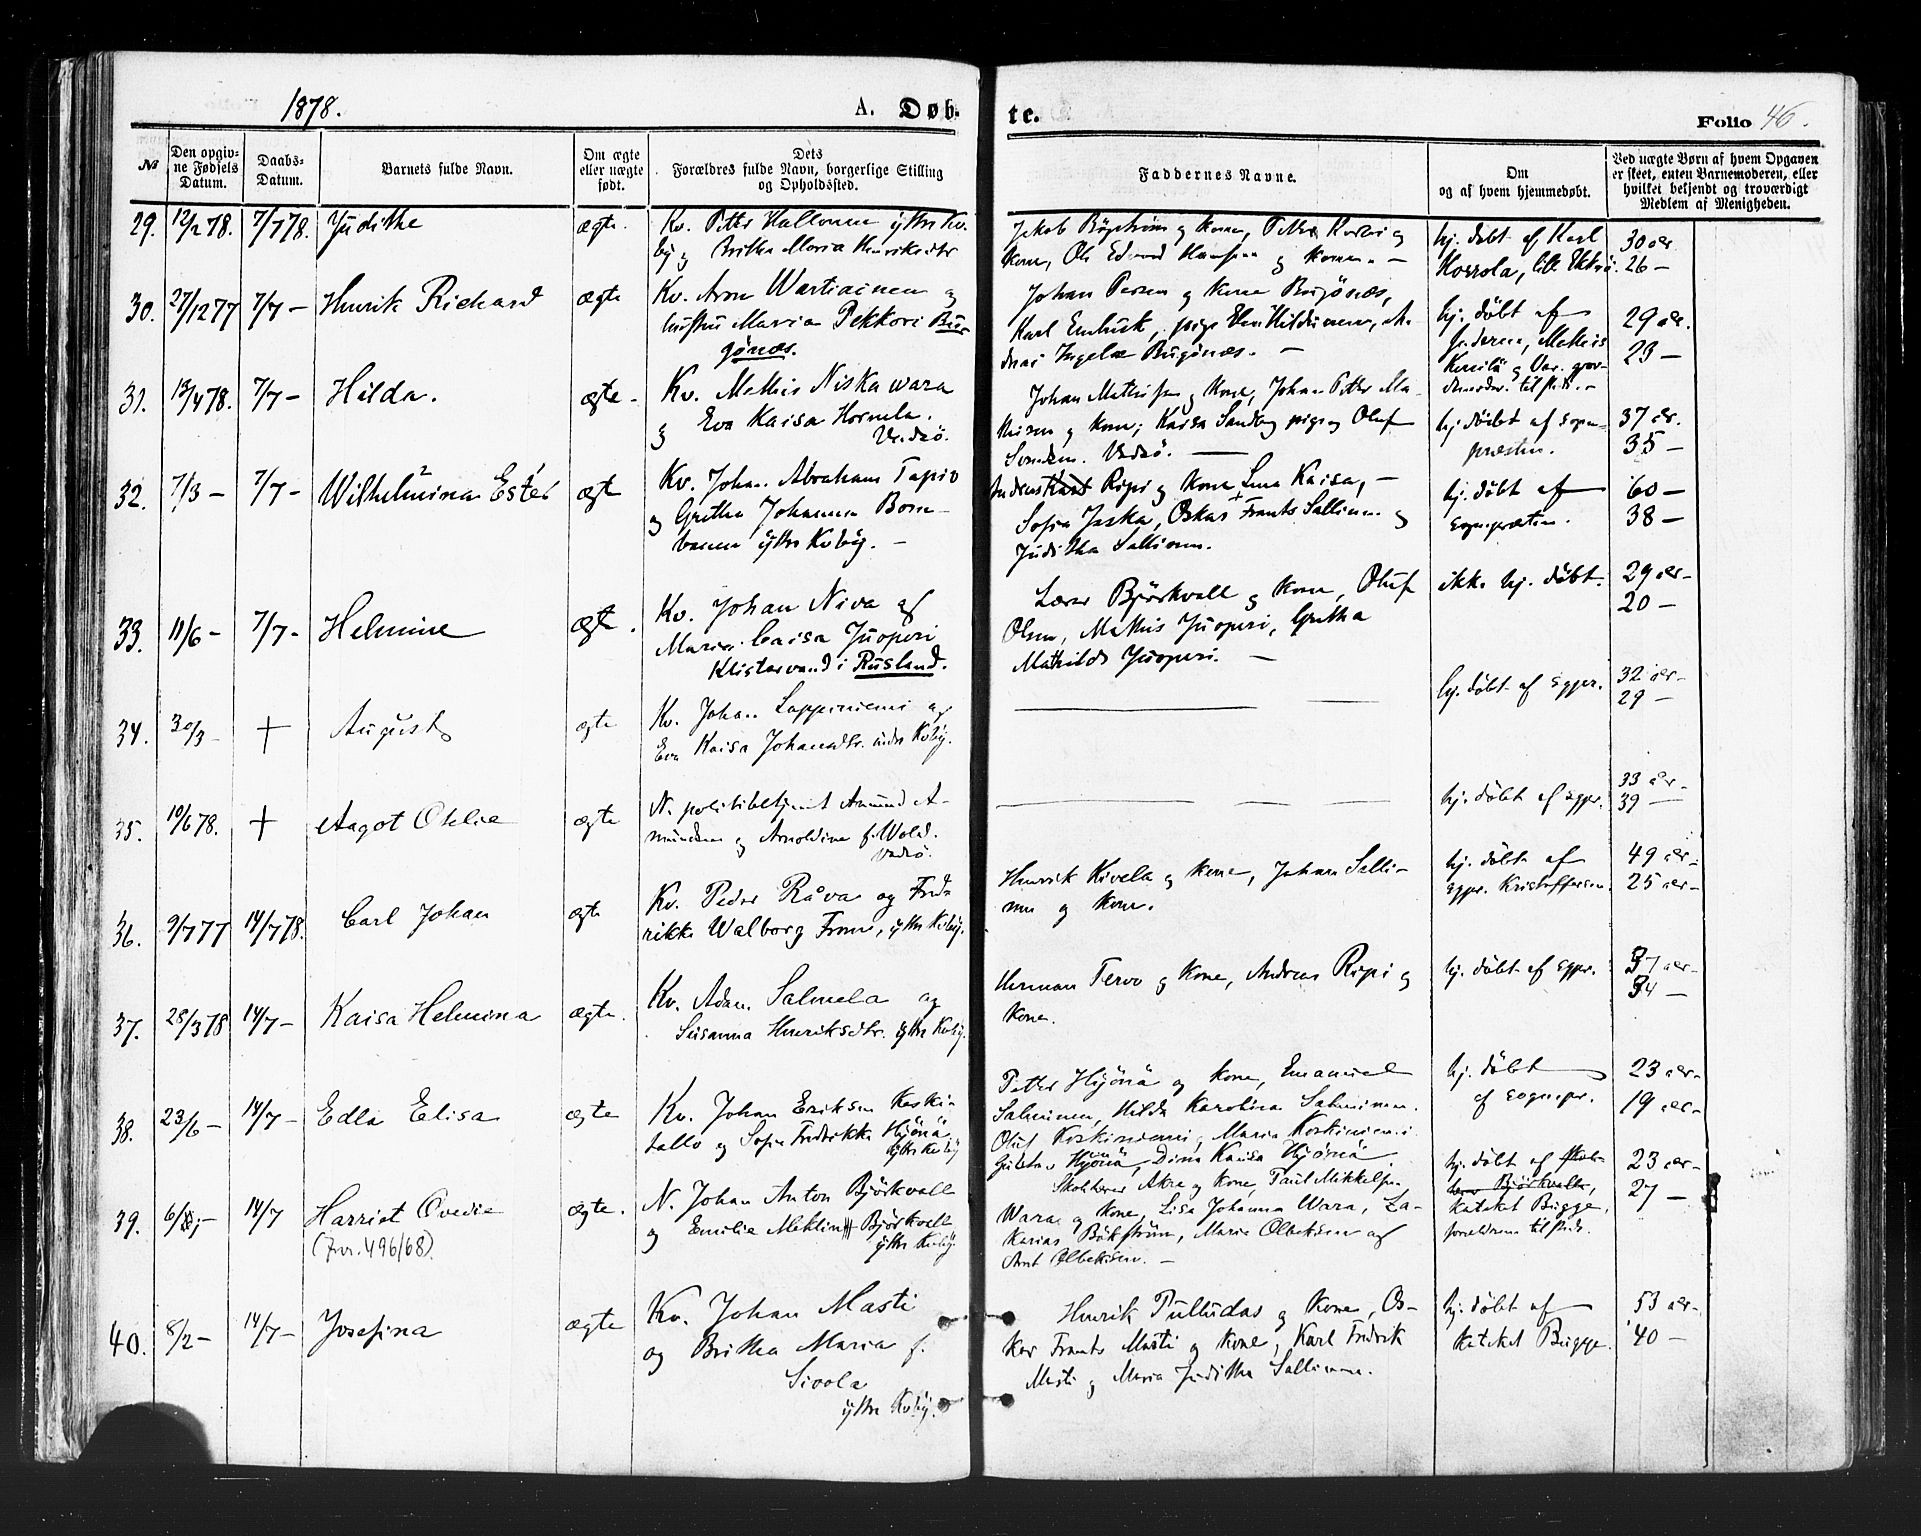 1878.
A. Døb-
te.
Folio 46.
№
Den opgiv-
ne Fødsels
Datum.
Daabs-
Datum.
Barnets fulde Navn.
Om ægte
eller uægte
født.
Dets
Forældres fulde Navn, borgerlige Stilling
og Opholdssted.
Faddernes Navne.
Om
og af hvem hjemmedøbt.
Ved uægte Børn af hvem Opgaven
er skeet, enten Barnemoderen, eller
hvilket bekjendt og troværdigt
Medlem af Menigheden.
29. 12/2 78. 7/7 78. Judithe ægte.
Kv. Petter
by og Britha Maria Henriksdtr
kone, Ole Edvard Hansen og konen. —
hj. døbt af Karl
30 aar.
26 —
30. 27/12 77 7/7 — Henrik Richard ægte
Kv. Aron Wartiainen og
hustru Maria Pekkori Bug
gönæs.
Johan Persen og kone Bugönæs,
Karl
Bugönæs. —
hj. döbt af
Mathis
29 aar.
23 —
31. 13/4 78. 7/7 — Hilda. ægte —
Kv. Mathis Niskawara
og Eva Kaisa
Vadsö.
Johan Mathisen og kone, Johan Petter Ma-
thisen og kone; Kaisa Sandberg pige og Oluf
Vadsö. —
hj. döbt af sogne-
præsten.
37 aar.
35 —
32. 7/3 — 7/7 — Wilhelmina Ester ægte
Kv. Johan Abraham Tapio
og Gretha Johanna Born-
ytre Kvby. —
Andreas Ripi og kone Lena Kaisa, —
Sofia Jaska, Oskar Frants Sallinen og
Juditha Sallinen.
hj. döbt af
sognepræsten.
60 —
38 —
33. 11/6 — 7/7 — Helmine ægte.
Kv. Johan Niva og
Maria Caisa Juoperi
Klistervand i Rusland.
Lærer Björkvall og kone, Oluf
Olsen, Mathis Juoperi, Gretha
Mathilde Juoperi. —
ikke hj. döbt.
29 aar —
20 —
34. 30/3 — + August ægte
Kv. Johan Lappiniemi og
Eva Kaisa Johansdtr. indre Kvby.
hj. döbt af sgpr.
32 aar —
29 —
35. 10/6 78. + Aagot Otelie ægte
N. politibetjent Amund A-
mundsen og Arnoldine f. Wold.
Vadsö.
hj. döbt af sgpr.
33 aar —
39 —
36. 9/7 77 14/7 78. Carl Johan ægte
Kv. Peder Råva og Fred-
rikke Walborg ytre Kvby.
Henrik Kivela og kone, Johan Salli-
nen og kone.
hj. döbt af
sgpr. Kristoffersen.
49 aar —
25 aar —
37. 28/3 78 14/7 — Kaisa Helmina ægte.
Kv. Adam Salmela og
Susanna Henriksdtr. ytre Kvby.
Herman Tervo og kone, Andreas Ripi og
kone.
hj. döbt af sgpr.
37 aar —
34 —
38. 23/6 — 14/7 — Edla Elisa ægte
Kv. Johan Eriksen Keski-
tallo og Sofia Fredrikke Hyönä
ytre Kvby
Petter Hyönä og kone, Emanuel
Salminen, Hilda Karolina Salminen.
Oluf Koskiniemi, Maria Koskiniemi
Gustav Hyönä, Dina Kaisa Hyönä
hj. döbt
af sognepr.
23 aar —
19 aar —
39. 14/7 Harriet Ovedie ægte.
(Jnr. 496/68)
N. Johan Anton Björkvall
og Emilie Meklin Björkvall
ytre Kvby.
Skolelærer Akre og kone, Paul Mikkelsen
Wara og kone, Lisa Johanna Wara, Za-
karias Bäkström, Marie Olbeksen og
Arnt Olbeksen. —
hj. döbt af skole-
lærer Björkvall,
kateket Bugge,
forældrene tilstede.
23 aar —
27 —
40. 8/2 — 14/7 — Josefina ægte
Kv. Johan Masti
og Britha Maria f.
Sivola
ytre Kvby.
Henrik Pulludas og kone, Os-
kar Frants Masti og kone, Karl Fredrik
Masti og Maria Juditha Sallinen.
hj. döbt af
kateket Bugge.
53 aar —
40 —